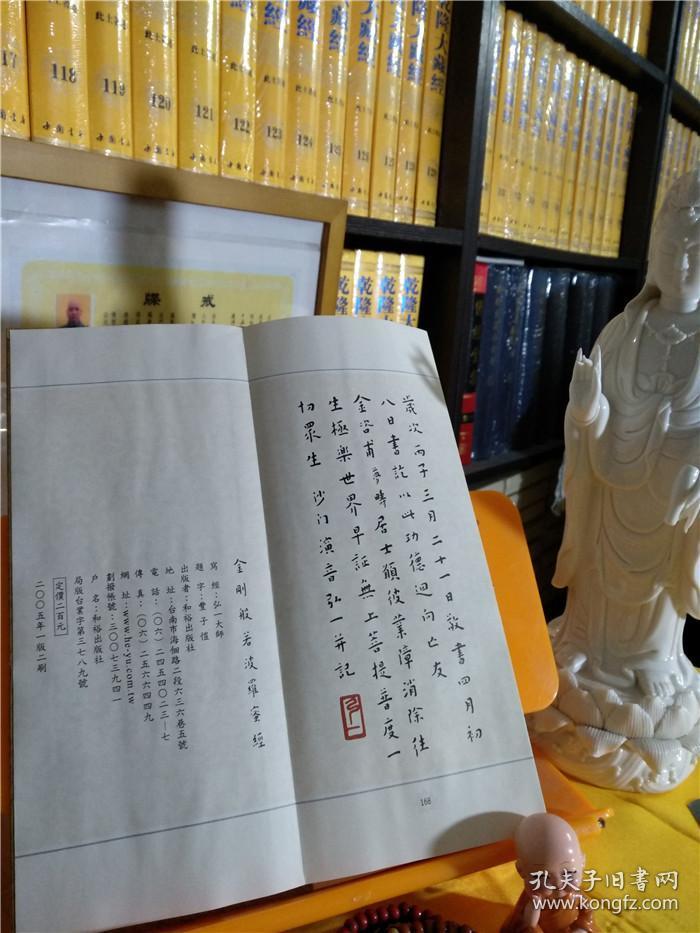 乾隆大藏經
乾隆大藏經
117
118
119
120
121
122
123
124
125
126
127
128
中國書店
中國書店
戒牒
乾隆大
乾隆大
歲次丙子三月二十一日敬書四月初
八日書訖以此功德迴向亡友
金咨甫夢疇居士願彼業障消除往
生極樂世界早証無上菩提普度一
切眾生 沙门演音弘一并記
弘一
168
金剛般若波羅蜜經
寫 經:弘一大師
題 字:豐子愷
出版者:和裕出版社
地 址:台南市海佃路二段六三六巷五號
電 話:(〇六)二四五四〇二三—七
傳 真:(〇六)二五六六四四九
網 址:www.he-yu.com.tw
劃撥帳號:三〇〇七三九四一
戶 名:和裕出版社
局版台業字第三七八九號
定價二百元
二〇〇五年一版二刷
孔夫子旧书网
www.kongfz.com